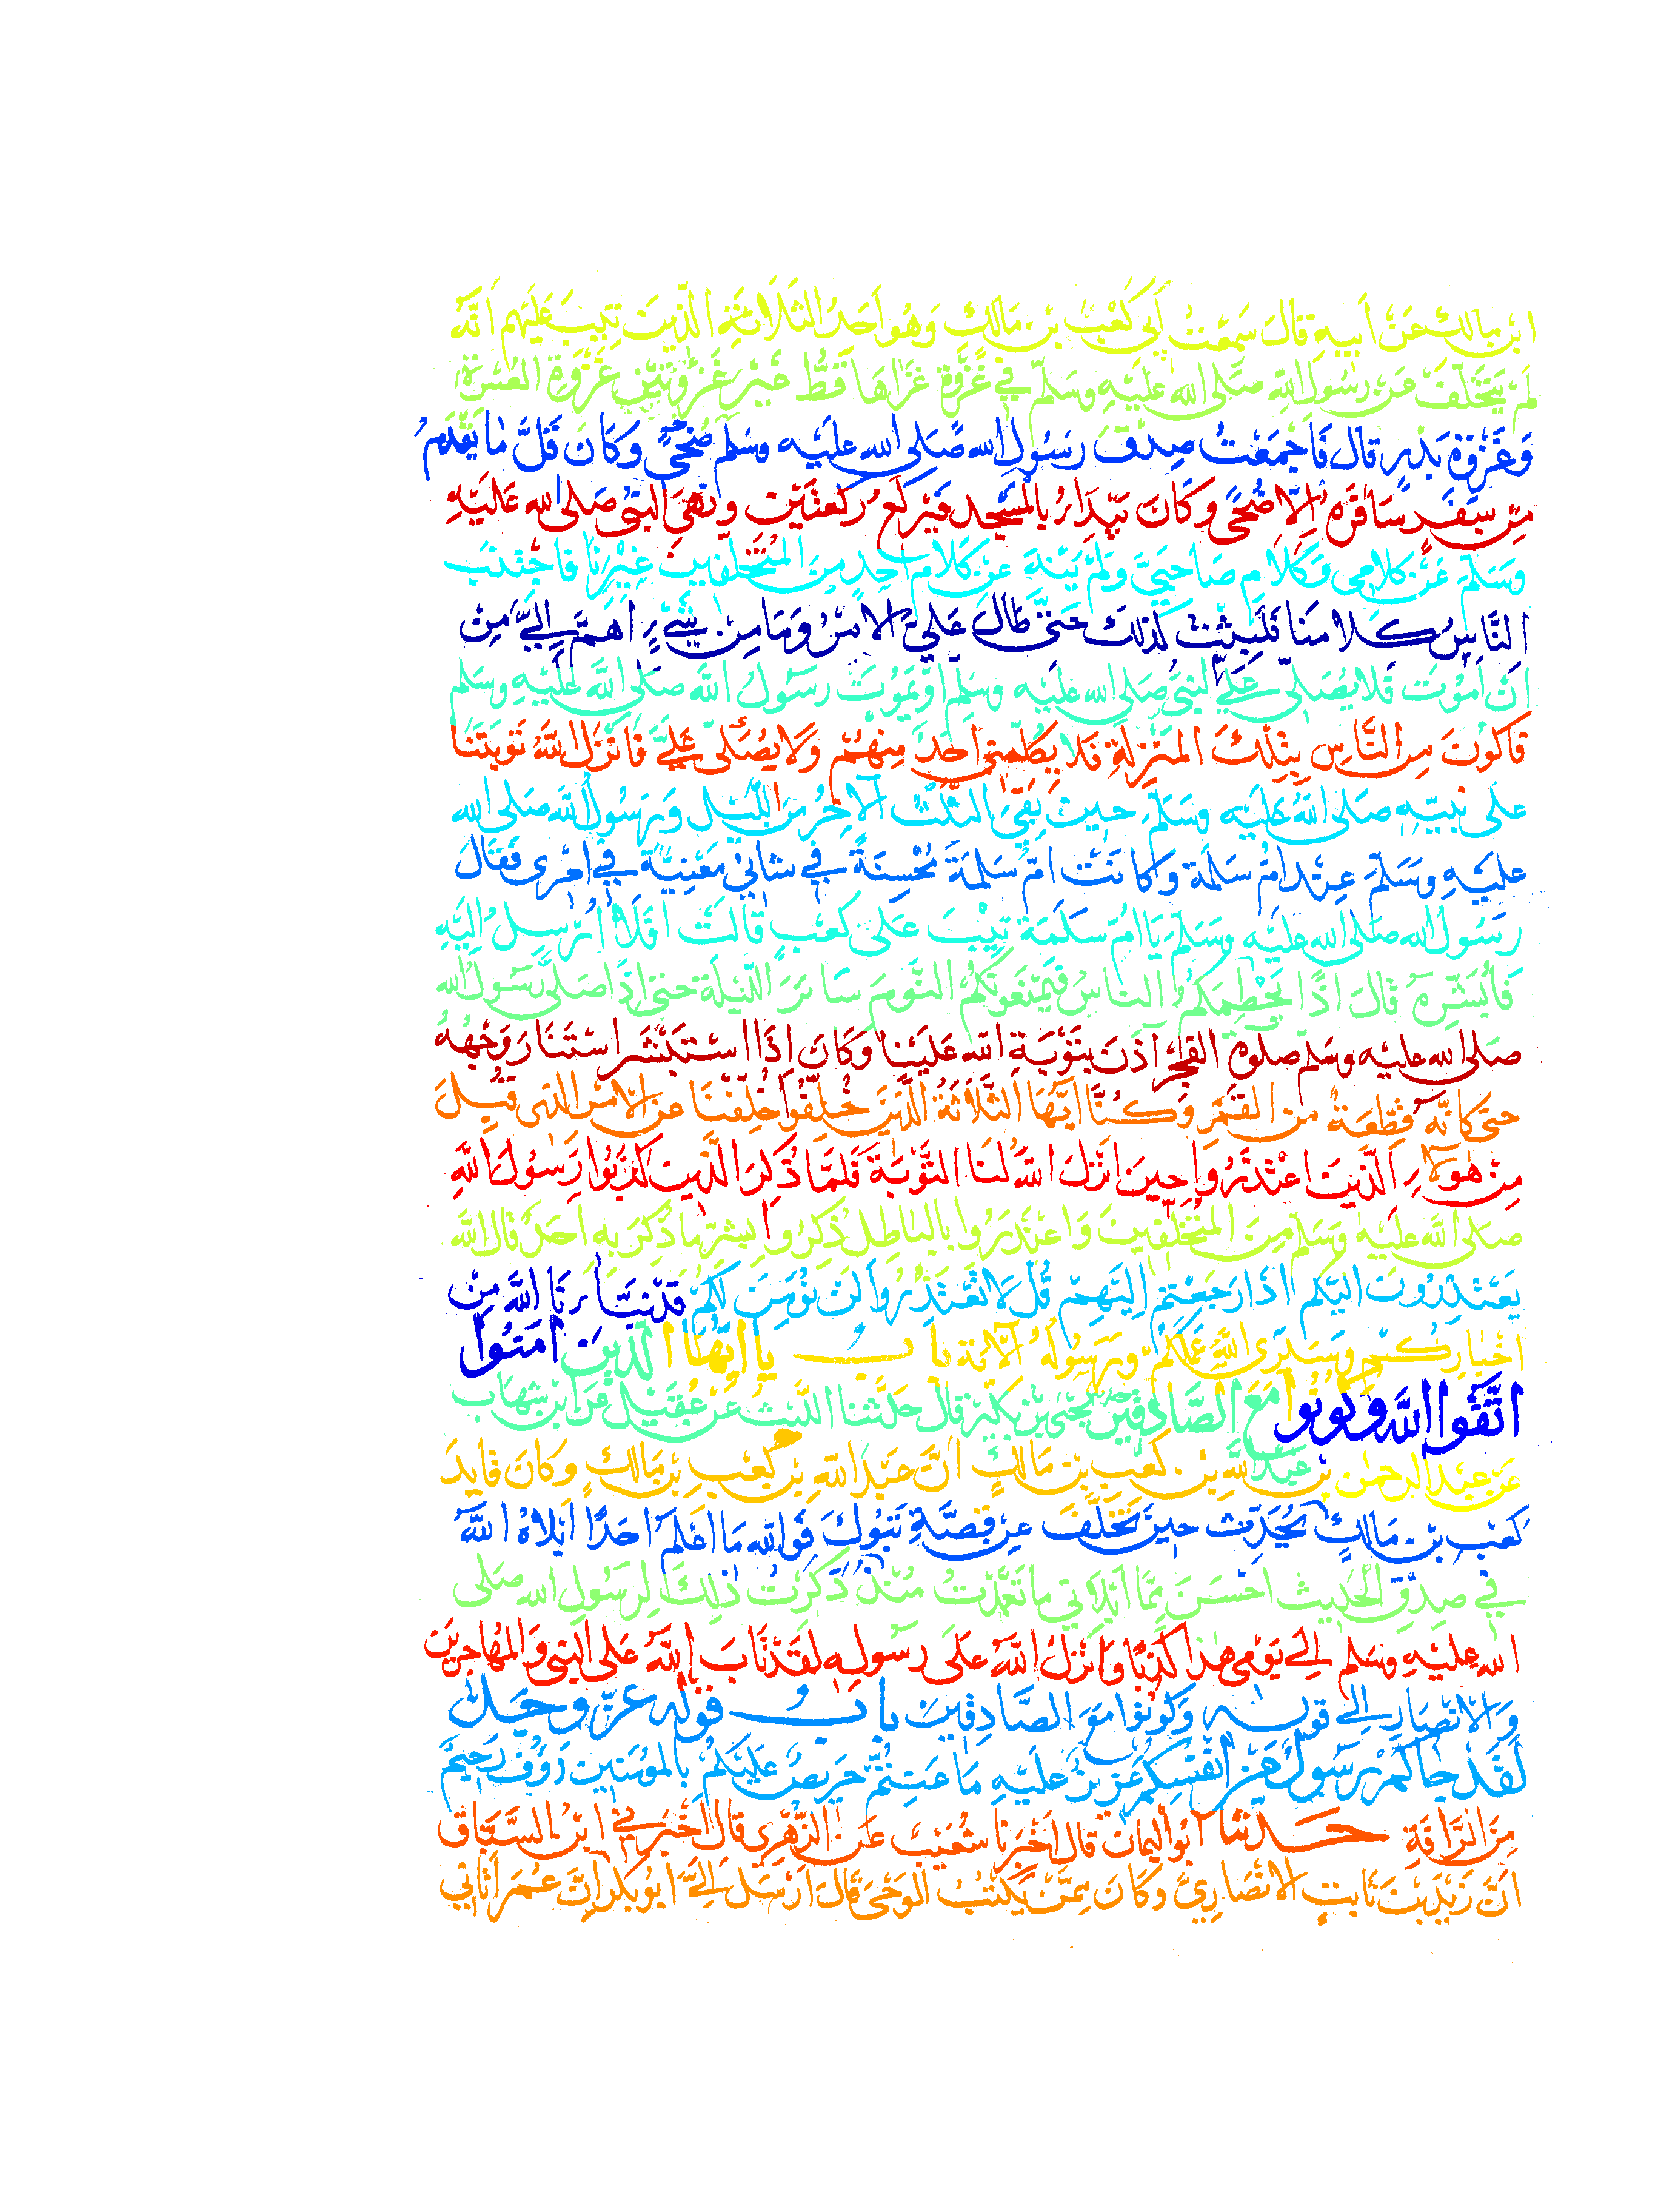 ابن مالك عن أبيه قال سمعت أبي كعب بن مالك وهو أحد الثلاثة الذين تيب عليهم أنه
لم يتخلف عن رسول الله صلى الله عليه وسلم في غزوة غزاها قط غير غزوتين غزوة العسرة
وغزوة بدر قال فأجمعت صدق رسول الله صلى الله عليه وسلم ضحى وكان قل ما يقدم
من سفر سافره إلا ضحى وكان يبدأ بالمسجد فيركع ركعتين ونهى النبي صلى الله عليه
وسلم عن كلامي وكلام صاحبي ولم ينه عن كلام أحد من المتخلفين غيرنا فاجتنب
الناس كلامنا فلبثت كذلك حتى طال علي الامر وما من شيء أهم إلي من
ان أموت فلا يصلي علي النبي صلى الله عليه وسلم أو يموت رسول الله صلى الله عليه وسلم
فاكون من الناس بتلك المنزلة فلا يكلمني أحد منهم ولا يصلى علي فانزل الله توبتنا
على نبيه صلى الله عليه وسلم حين بقي الثلث الآخر من الليل ورسول الله صلى الله
عليه وسلم عند أم سلمة وكانت أم سلمة محسنة في شاني معنية في امري فقال
رسول الله صلى الله عليه وسلم يا أم سلمة تيب على كعب قالت أفلا أرسل إليه
فأبشره قال اذا يحطمكم الناس فيمنعونكم النوم سائر الليلة حتى إذا صلى رسول الله
صلى الله عليه وسلم صلوة الفجر آذن بتوبة الله علينا وكان إذا استبشر استنار وجهه
حتى كانه قطعة من القمر وكنا أيها الثلاثة الذين خلفوا خلفنا عن الامر الذي قبل
من هولاء الذين اعتذروا حين انزل الله لنا التوبة فلما ذكر الذين كذبوا رسول الله
صلى الله عليه وسلم من المتخلفين واعتذروا بالباطل ذكروا بشر ما ذكر به أحد قال الله
يعتذرون اليكم اذا رجعتم إليهم قل لا تعتذروا لن نؤمن لكم قد نبأنا الله من
أخباركم وسيرى الله عملكم ورسوله الآية باب يا ايها الذين امنوا
اتقوا الله وكونوا مع الصادقين يحيى بن بكير قال حدثنا الليث عن عقيل عن ابن شهاب
عن عبد الرحمن بن عبد الله بن كعب بن مالك أن عبد الله بن كعب بن مالك وكان قايد
كعب بن مالك يحدث حين تخلف عن قصة تبوك فوالله ما اعلم احدا ابلاه الله
في صدق الحديث احسن مما أبلاني ما تعمدت منذ ذكرت ذلك لرسول الله صلى
الله عليه وسلم الي يومي هذا كذبا وانزل الله على رسوله لقد تاب الله على النبي والمهاجرين
والانصار الي قوله وكونوا مع الصادقين باب قوله عز وجل
لقد جاكم رسول من انفسكم عزيز عليه ما عنتم حريص عليكم بالمؤمنين رؤوف رحيم
من الرأفة حدثنا أبو اليمان قال أخبرنا شعيب عن الزهري قال أخبرني ابن السباق
أن زيد بن ثابت الانصاري وكان ممن يكتب الوحي قال أرسل إلي أبو بكر أن عمر أتاني